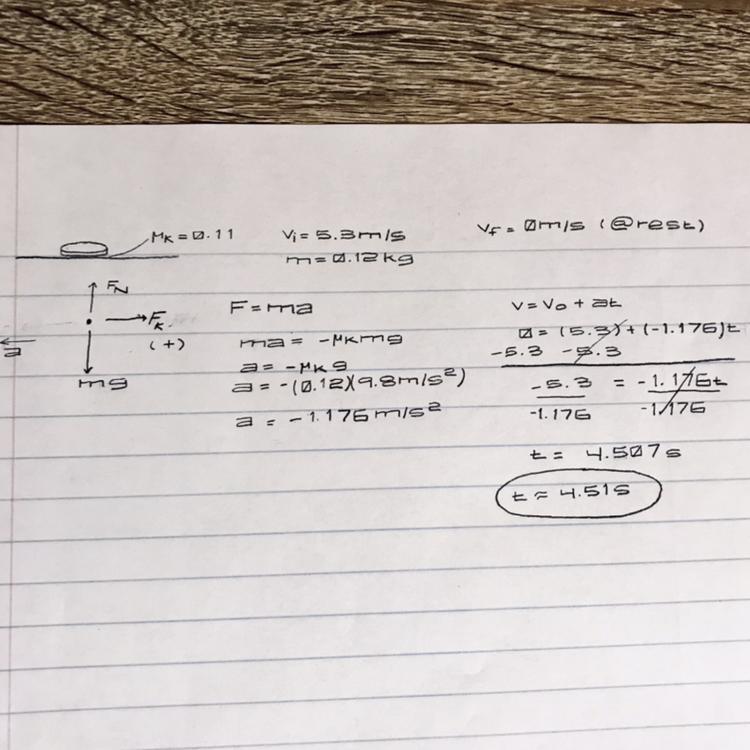 μk = 0.11
Vi = 5.3m/s
m = 0.12kg
Vf = 0m/s (@rest)
FN
Fk
(+)
a
mg
F = ma
ma = -μkmg
a = -μkg
a = -(0.12)(9.8m/s²)
a = -1.176m/s²
V = Vo + at
0 = (5.3) + (-1.176)t
-5.3 -5.3
-5.3 = -1.176t
-1.176 -1.176
t = 4.507s
t ≈ 4.51s